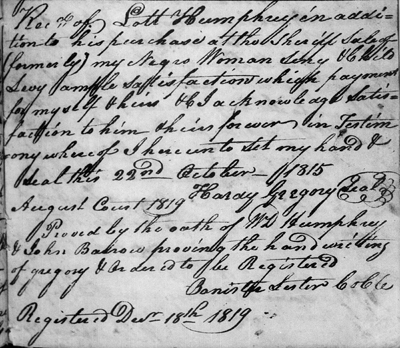 Recd of Lott Humphrey in addi-
tion to his purchase at the Sheriff Sale of
(formerly) my Negro Woman & Child
Levy ample satisfaction which payment
for myself & heirs &C I acknowledge Satis-
faction to him & heirs forever in Testim
ony whereof I hereunto Set my hand &
Seal this 22nd October 1815
Hardy Gregory Seal
August Court 1819
Proved by the oath of WD Humphrey
& John Barrow proving the hand writing
of gregory & Ordered to be Registered
Banister Lester CoClk
Registered Decr 18th 1819